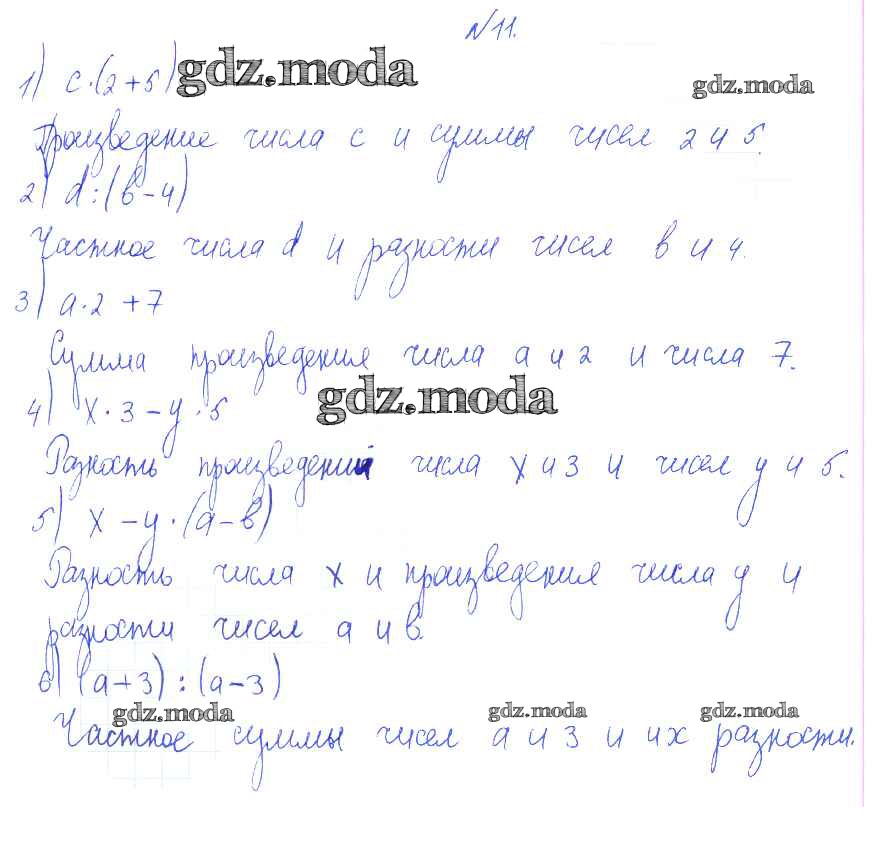 №11.
1) c·(2+5) gdz.moda
gdz.moda
Произведение числа c и суммы чисел 2 и 5.
2) d:(в-4)
Частное числа d и разности чисел в и 4.
3) a·2 +7
Сумма произведения числа a и 2 и числа 7.
4) x·3-y·5
gdz.moda
Разность произведений числа x и 3 и чисел y и 5.
5) x-y·(a-в)
Разность числа x и произведения числа y и
разности чисел a и в
6) (a+3):(a-3)
gdz.moda gdz.moda gdz.moda
Частное суммы чисел a и 3 и их разности.